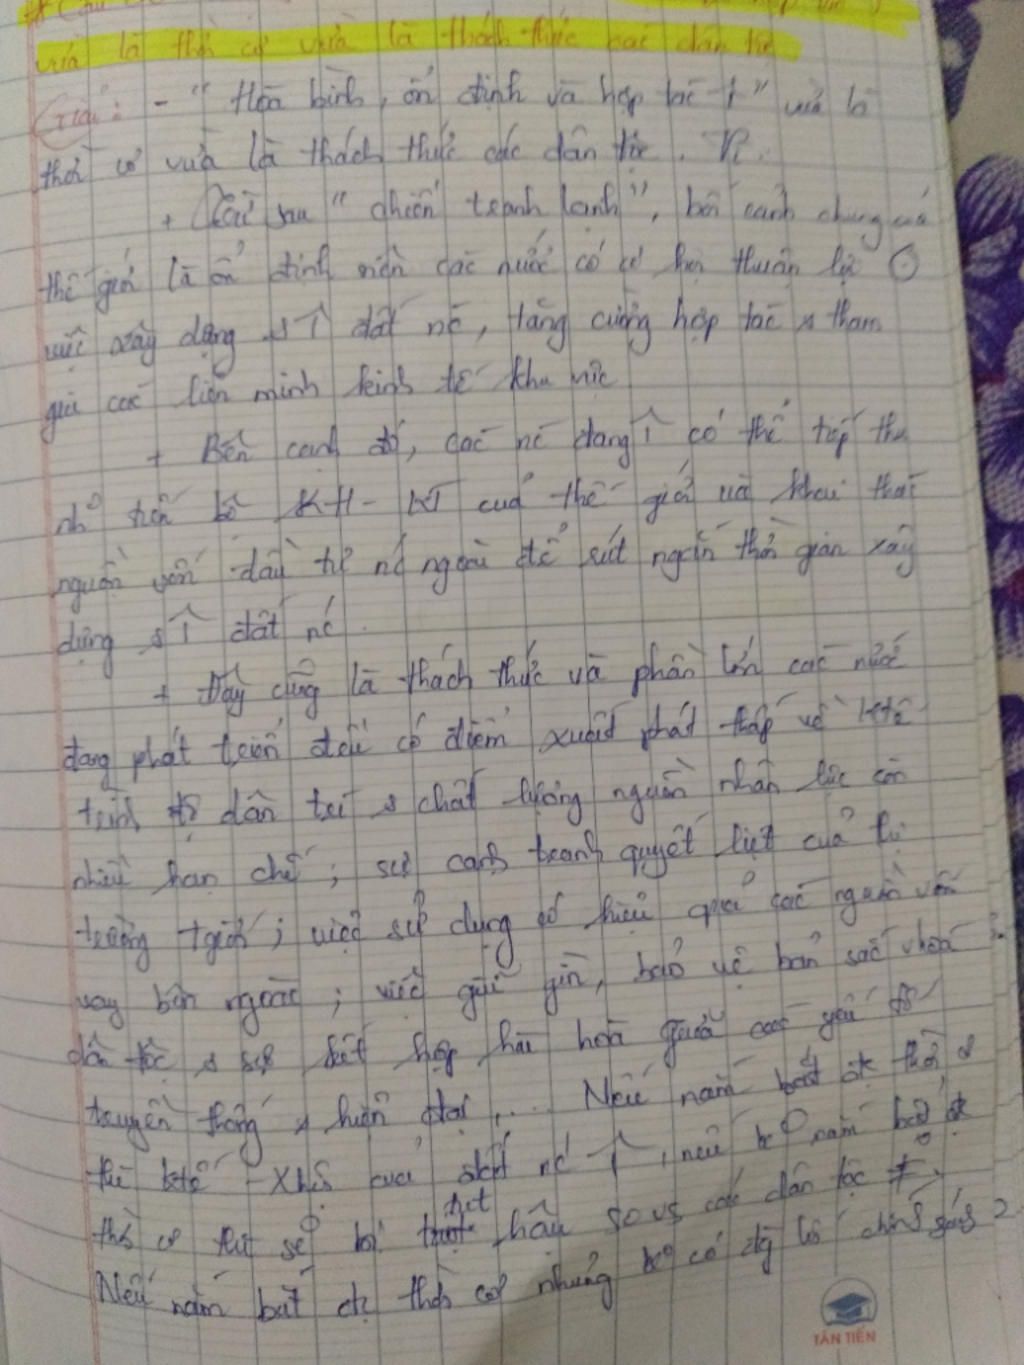 vừa là thời cơ vừa là thách thức các dân tộc
Giải: - " Hòa bình, ổn định và hợp tác ↑ " vừa là
thời cơ vừa là thách thức các dân tộc. Vì:
+ Từ sau " chiến tranh lạnh ", bối cảnh chung của
thế giới là ổn định nên các nước có cơ hội thuận lợi
việc xây dựng & ↑ đất nc, tăng cường hợp tác & tham
gia các liên minh kinh tế khu vực
+ Bên cạnh đó, các nc đang ↑ có thể tiếp thu
tiến bộ KH-KT của thế giới và khai thác
nguồn vốn đầu tư nc ngoài để rút ngắn thời gian xây
dựng & ↑ đất nc.
+ Đây cũng là thách thức vì phần lớn các nước
đang phát triển đều có điểm xuất phát thấp về ktế
trình độ dân trí & chất lượng nguồn nhân lực còn
nhiều hạn chế; sự cạnh tranh quyết liệt của thị
trường tgiới; việc sử dụng có hiệu quả các nguồn vốn
vay bên ngoài; việc giữ gìn, bảo vệ bản sắc vhoá
dân tộc & sự kết hợp hài hoà giữa các yếu tố
truyền thống & hiện đại,... Nếu nắm bắt đc thời cơ
thì ktế - Xhội của đất nc ↑, nếu ko nắm bắt đc
thời cơ thì sẽ bị tụt hậu so vs các dân tộc ≠,
Nếu nắm bắt đc thời cơ nhưng ko có đg lối chính sách
TÂN TIẾN